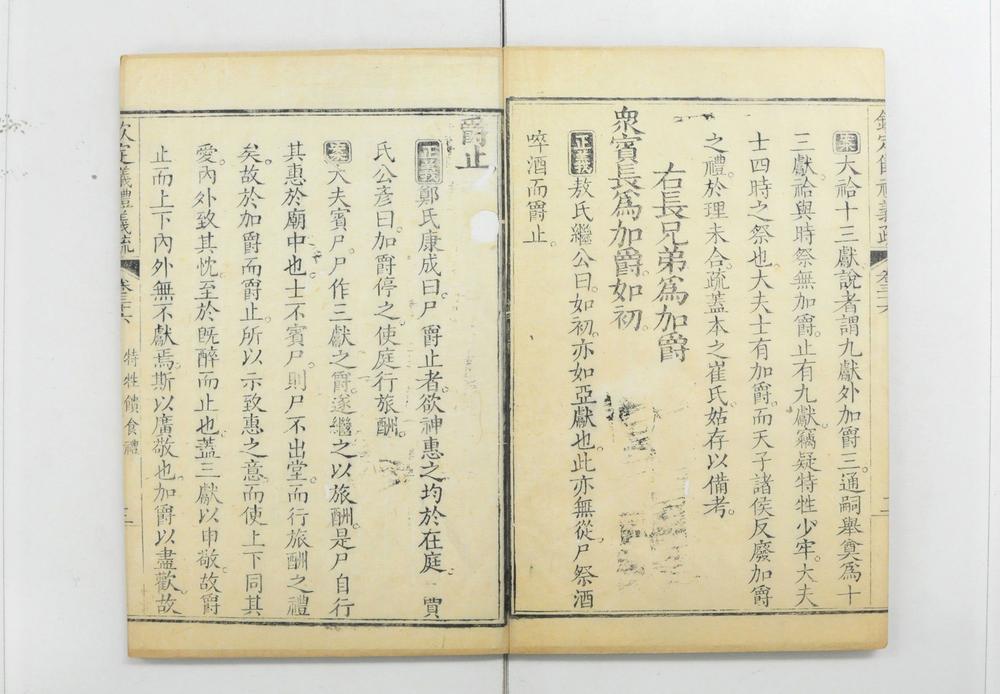 欽定儀禮義疏 卷三十六 二
案大祫十三獻說者謂九獻外加爵三通嗣舉奠為十
三獻祫與時祭無加爵止有九獻竊疑特牲少牢大夫
士四時之祭也大夫士有加爵而天子諸侯反廢加爵
之禮於理未合疏蓋本之崔氏姑存以備考
右長兄弟為加爵
衆賓長為加爵如初
正義敖氏繼公曰如初亦如亞獻也此亦無從尸祭酒
啐酒而爵止
爵止
正義鄭氏康成曰尸爵止者欲神惠之均於在庭 賈
氏公彥曰加爵停之使庭行旅酬
案大夫賓尸尸作三獻之爵遂繼之以旅酬是尸自行
其惠於廟中也士不賓尸則尸不出堂而行旅酬之禮
矣故於加爵而爵止所以示致惠之意而使上下同其
愛內外致其忱至於旣醉而止也蓋三獻以申敬故爵
止而上下內外無不獻焉斯以廣敬也加爵以盡歡故
欽定儀禮義疏 卷三十六 特牲饋食禮 二